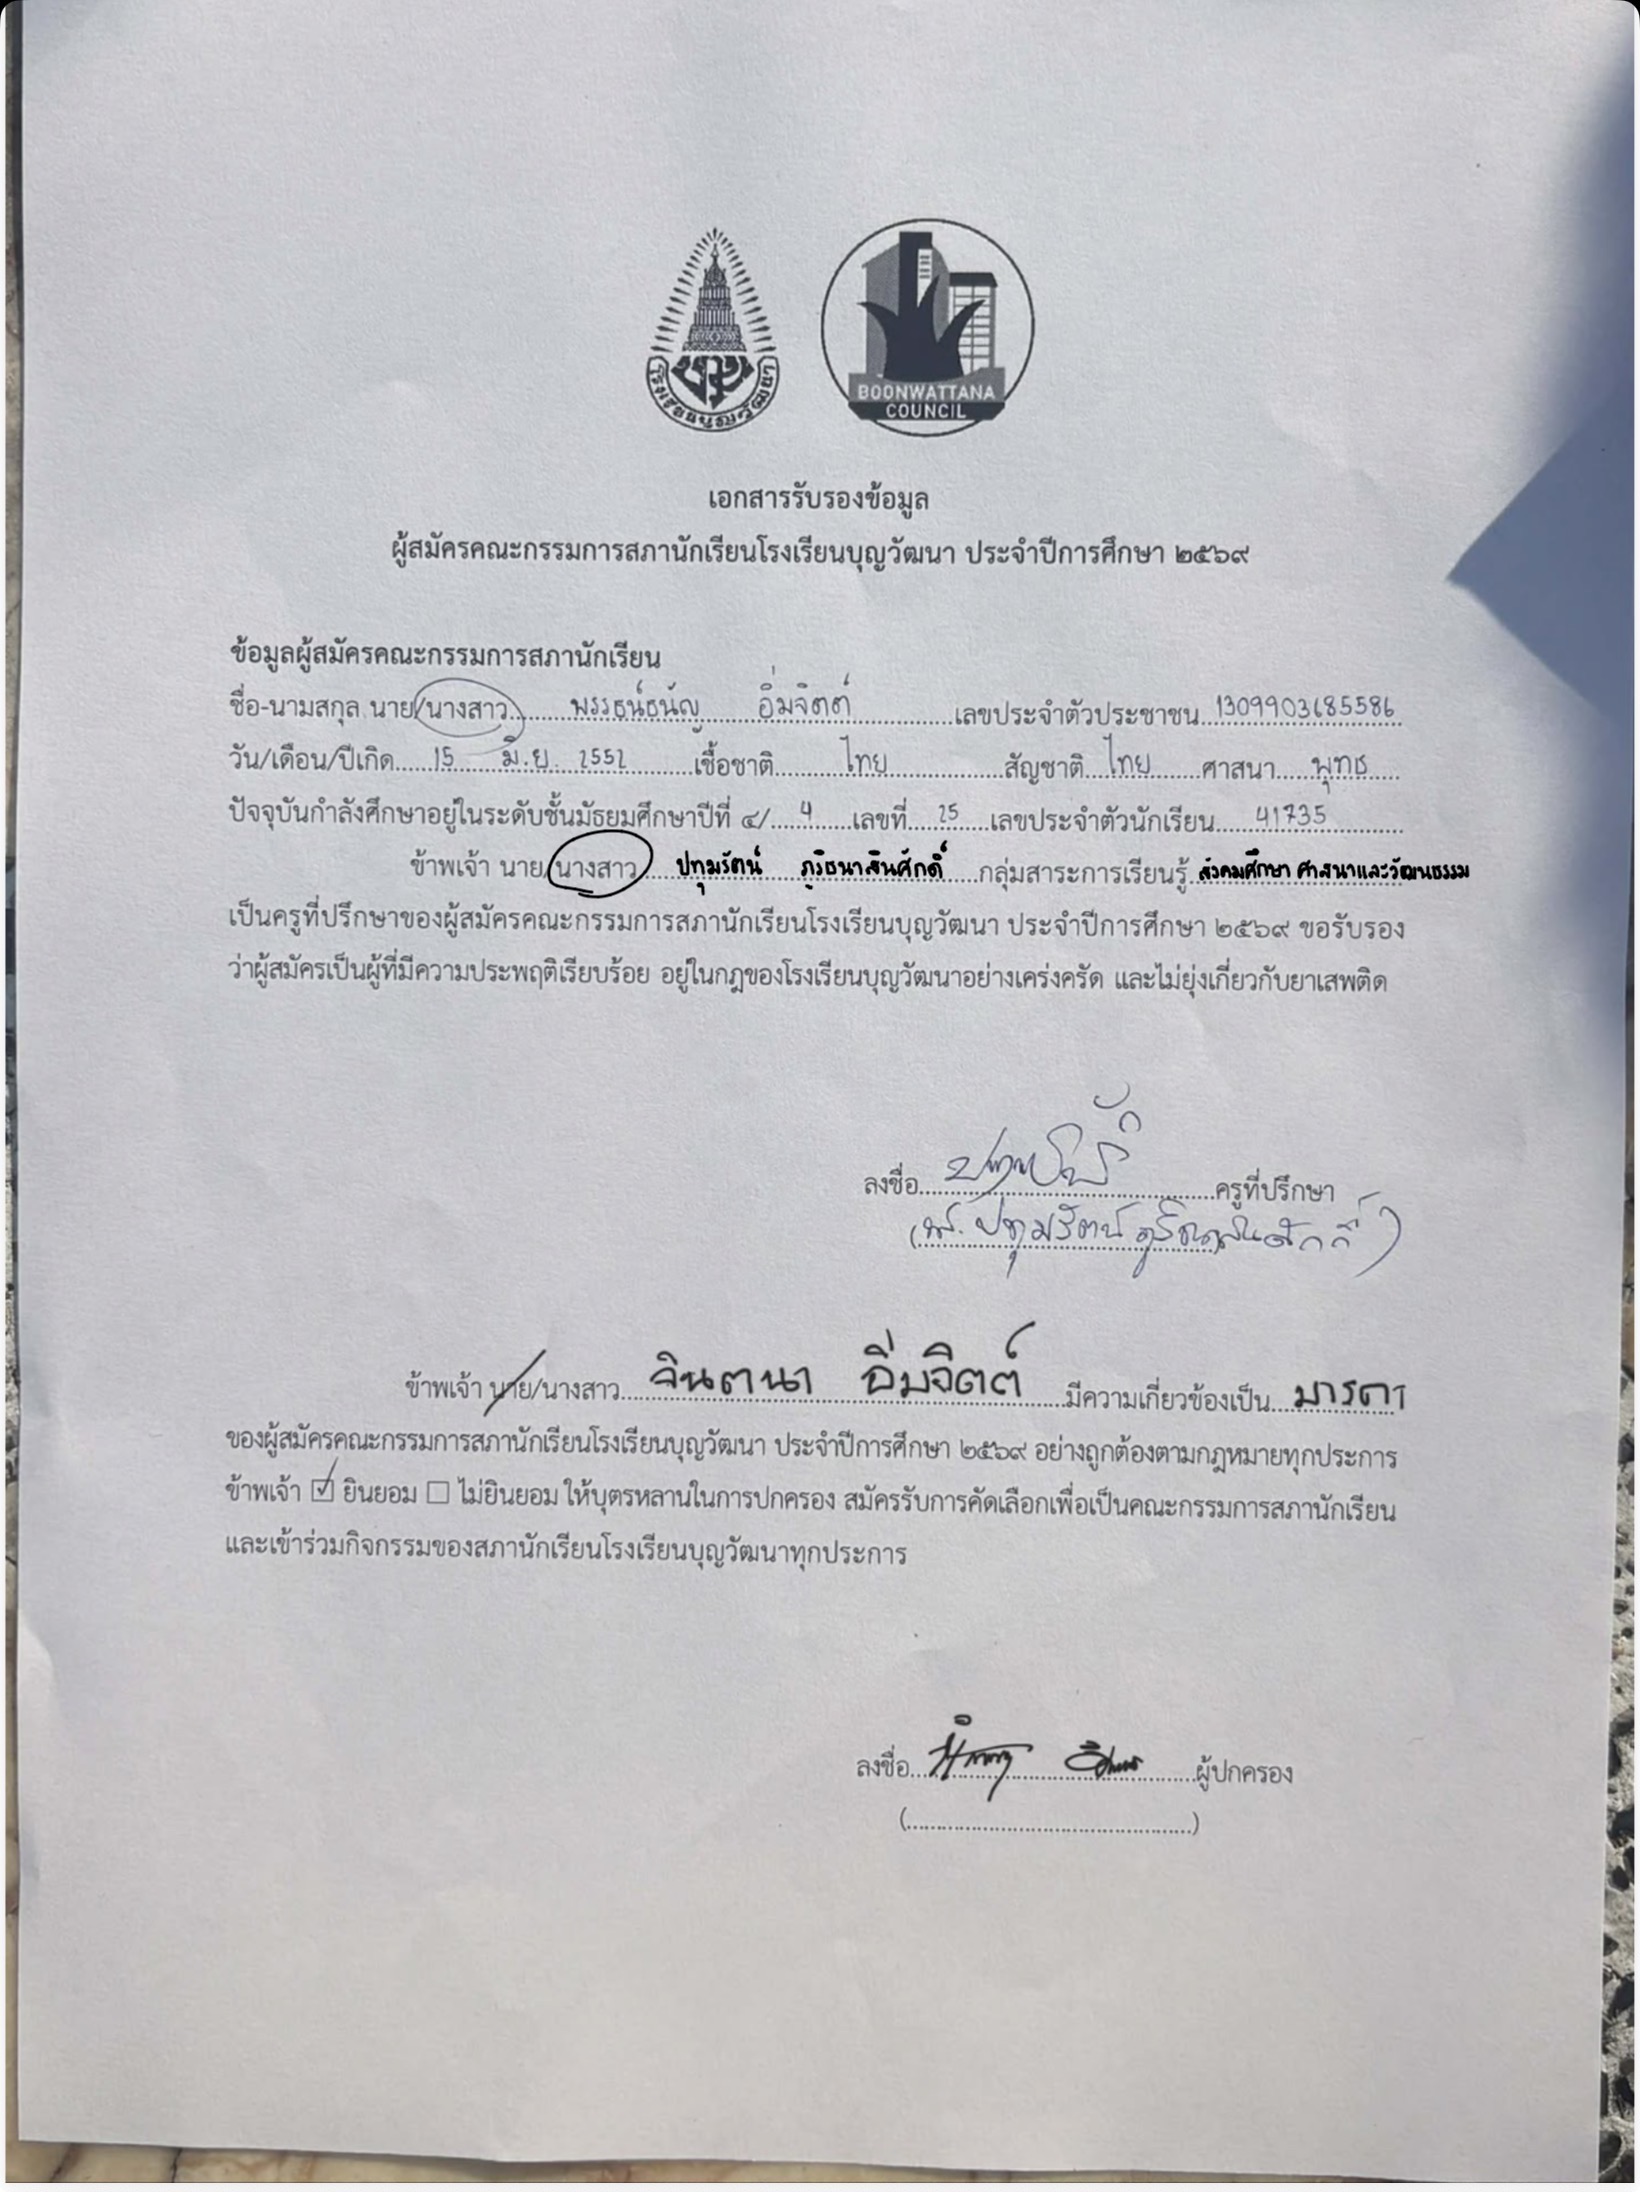 โรงเรียนบุญวัฒนา
BOONWATTANA
COUNCIL
เอกสารรับรองข้อมูล
ผู้สมัครคณะกรรมการสภานักเรียนโรงเรียนบุญวัฒนา ประจำปีการศึกษา ๒๕๖๙
ข้อมูลผู้สมัครคณะกรรมการสภานักเรียน
ชื่อ-นามสกุล นาย/นางสาว พรรธน์ธนัญ อิ่มจิตต์ เลขประจำตัวประชาชน 1309903685586
วัน/เดือน/ปีเกิด 15 มิ.ย. 2552 เชื้อชาติ ไทย สัญชาติ ไทย ศาสนา พุทธ
ปัจจุบันกำลังศึกษาอยู่ในระดับชั้นมัธยมศึกษาปีที่ ๔/ 4 เลขที่ 25 เลขประจำตัวนักเรียน 41735
ข้าพเจ้า นาย/นางสาว ปทุมรัตน์ ภูริธนาสินศักดิ์ กลุ่มสาระการเรียนรู้ สังคมศึกษา ศาสนาและวัฒนธรรม
เป็นครูที่ปรึกษาของผู้สมัครคณะกรรมการสภานักเรียนโรงเรียนบุญวัฒนา ประจำปีการศึกษา ๒๕๖๙ ขอรับรอง
ว่าผู้สมัครเป็นผู้ที่มีความประพฤติเรียบร้อย อยู่ในกฎของโรงเรียนบุญวัฒนาอย่างเคร่งครัด และไม่ยุ่งเกี่ยวกับยาเสพติด
ลงชื่อ ครูที่ปรึกษา
(นส. ปทุมรัตน์ ภูริธนาสินศักดิ์)
ข้าพเจ้า นาย/นางสาว จินตนา อิ่มจิตต์ มีความเกี่ยวข้องเป็น มารดา
ของผู้สมัครคณะกรรมการสภานักเรียนโรงเรียนบุญวัฒนา ประจำปีการศึกษา ๒๕๖๙ อย่างถูกต้องตามกฎหมายทุกประการ
ข้าพเจ้า ☑ ยินยอม ☐ ไม่ยินยอม ให้บุตรหลานในการปกครอง สมัครรับการคัดเลือกเพื่อเป็นคณะกรรมการสภานักเรียน
และเข้าร่วมกิจกรรมของสภานักเรียนโรงเรียนบุญวัฒนาทุกประการ
ลงชื่อ ผู้ปกครอง
(........................................)